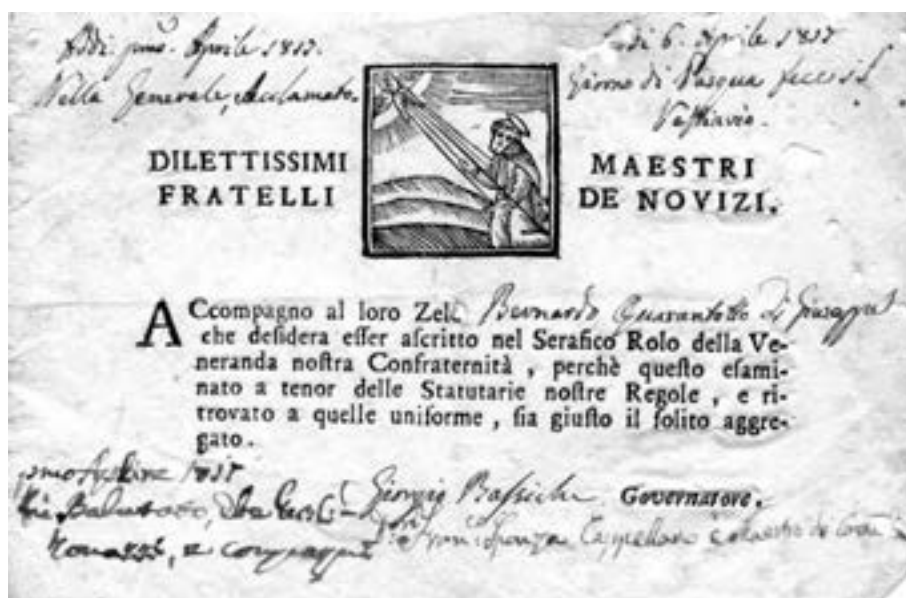 Addi pmo. Aprile 1817.
Nella Generale, Acclamato.
Addi 6. Aprile 1817
Giorno di Pasqua fece il
Vestiario.
DILETTISSIMI
FRATELLI
MAESTRI
DE NOVIZI.
ACcompagno al loro Zelo Bernardo Quarantotto di Giuseppe
che deſidera eſſer aſcritto nel Serafico Rolo della Ve-
neranda noſtra Confraternità , perchè queſto eſami-
nato a tenor delle Statutarie noſtre Regole , e ri-
trovato a quelle uniforme , ſia giuſto il ſolito aggre-
gato .
1817
Giorgio Governatore.
e compagni
Cappellano e Maestro di